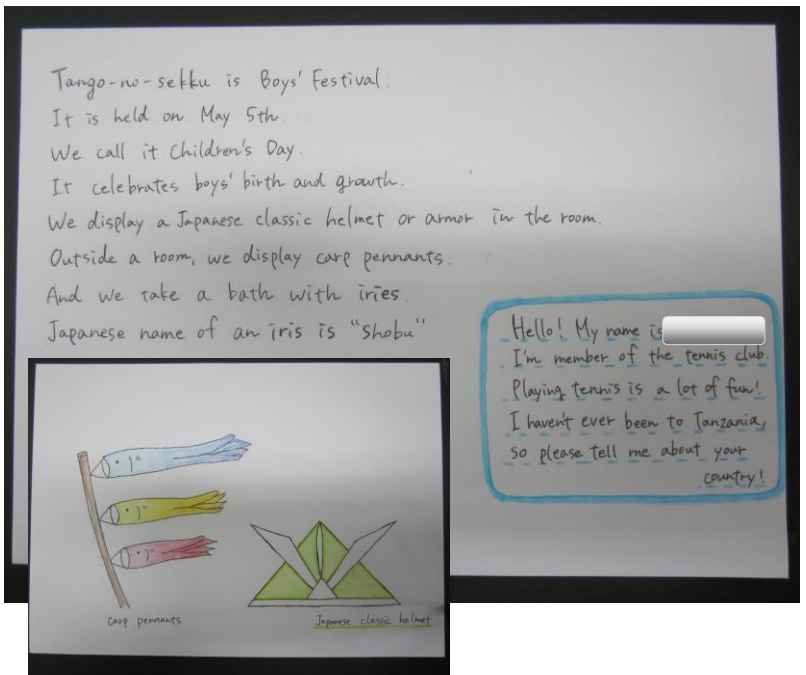 Tango-no-sekku is Boys' Festival.
It is held on May 5th.
We call it Children's Day.
It celebrates boys' birth and growth.
We display a Japanese classic helmet or armor in the room.
Outside a room, we display carp pennants.
And we take a bath with iries.
Japanese name of an iris is "Shobu"
Hello! My name is
I'm member of the tennis club.
Playing tennis is a lot of fun!
I haven't ever been to Tanzania,
so please tell me about your
country!
Carp pennants
Japanese classic helmet